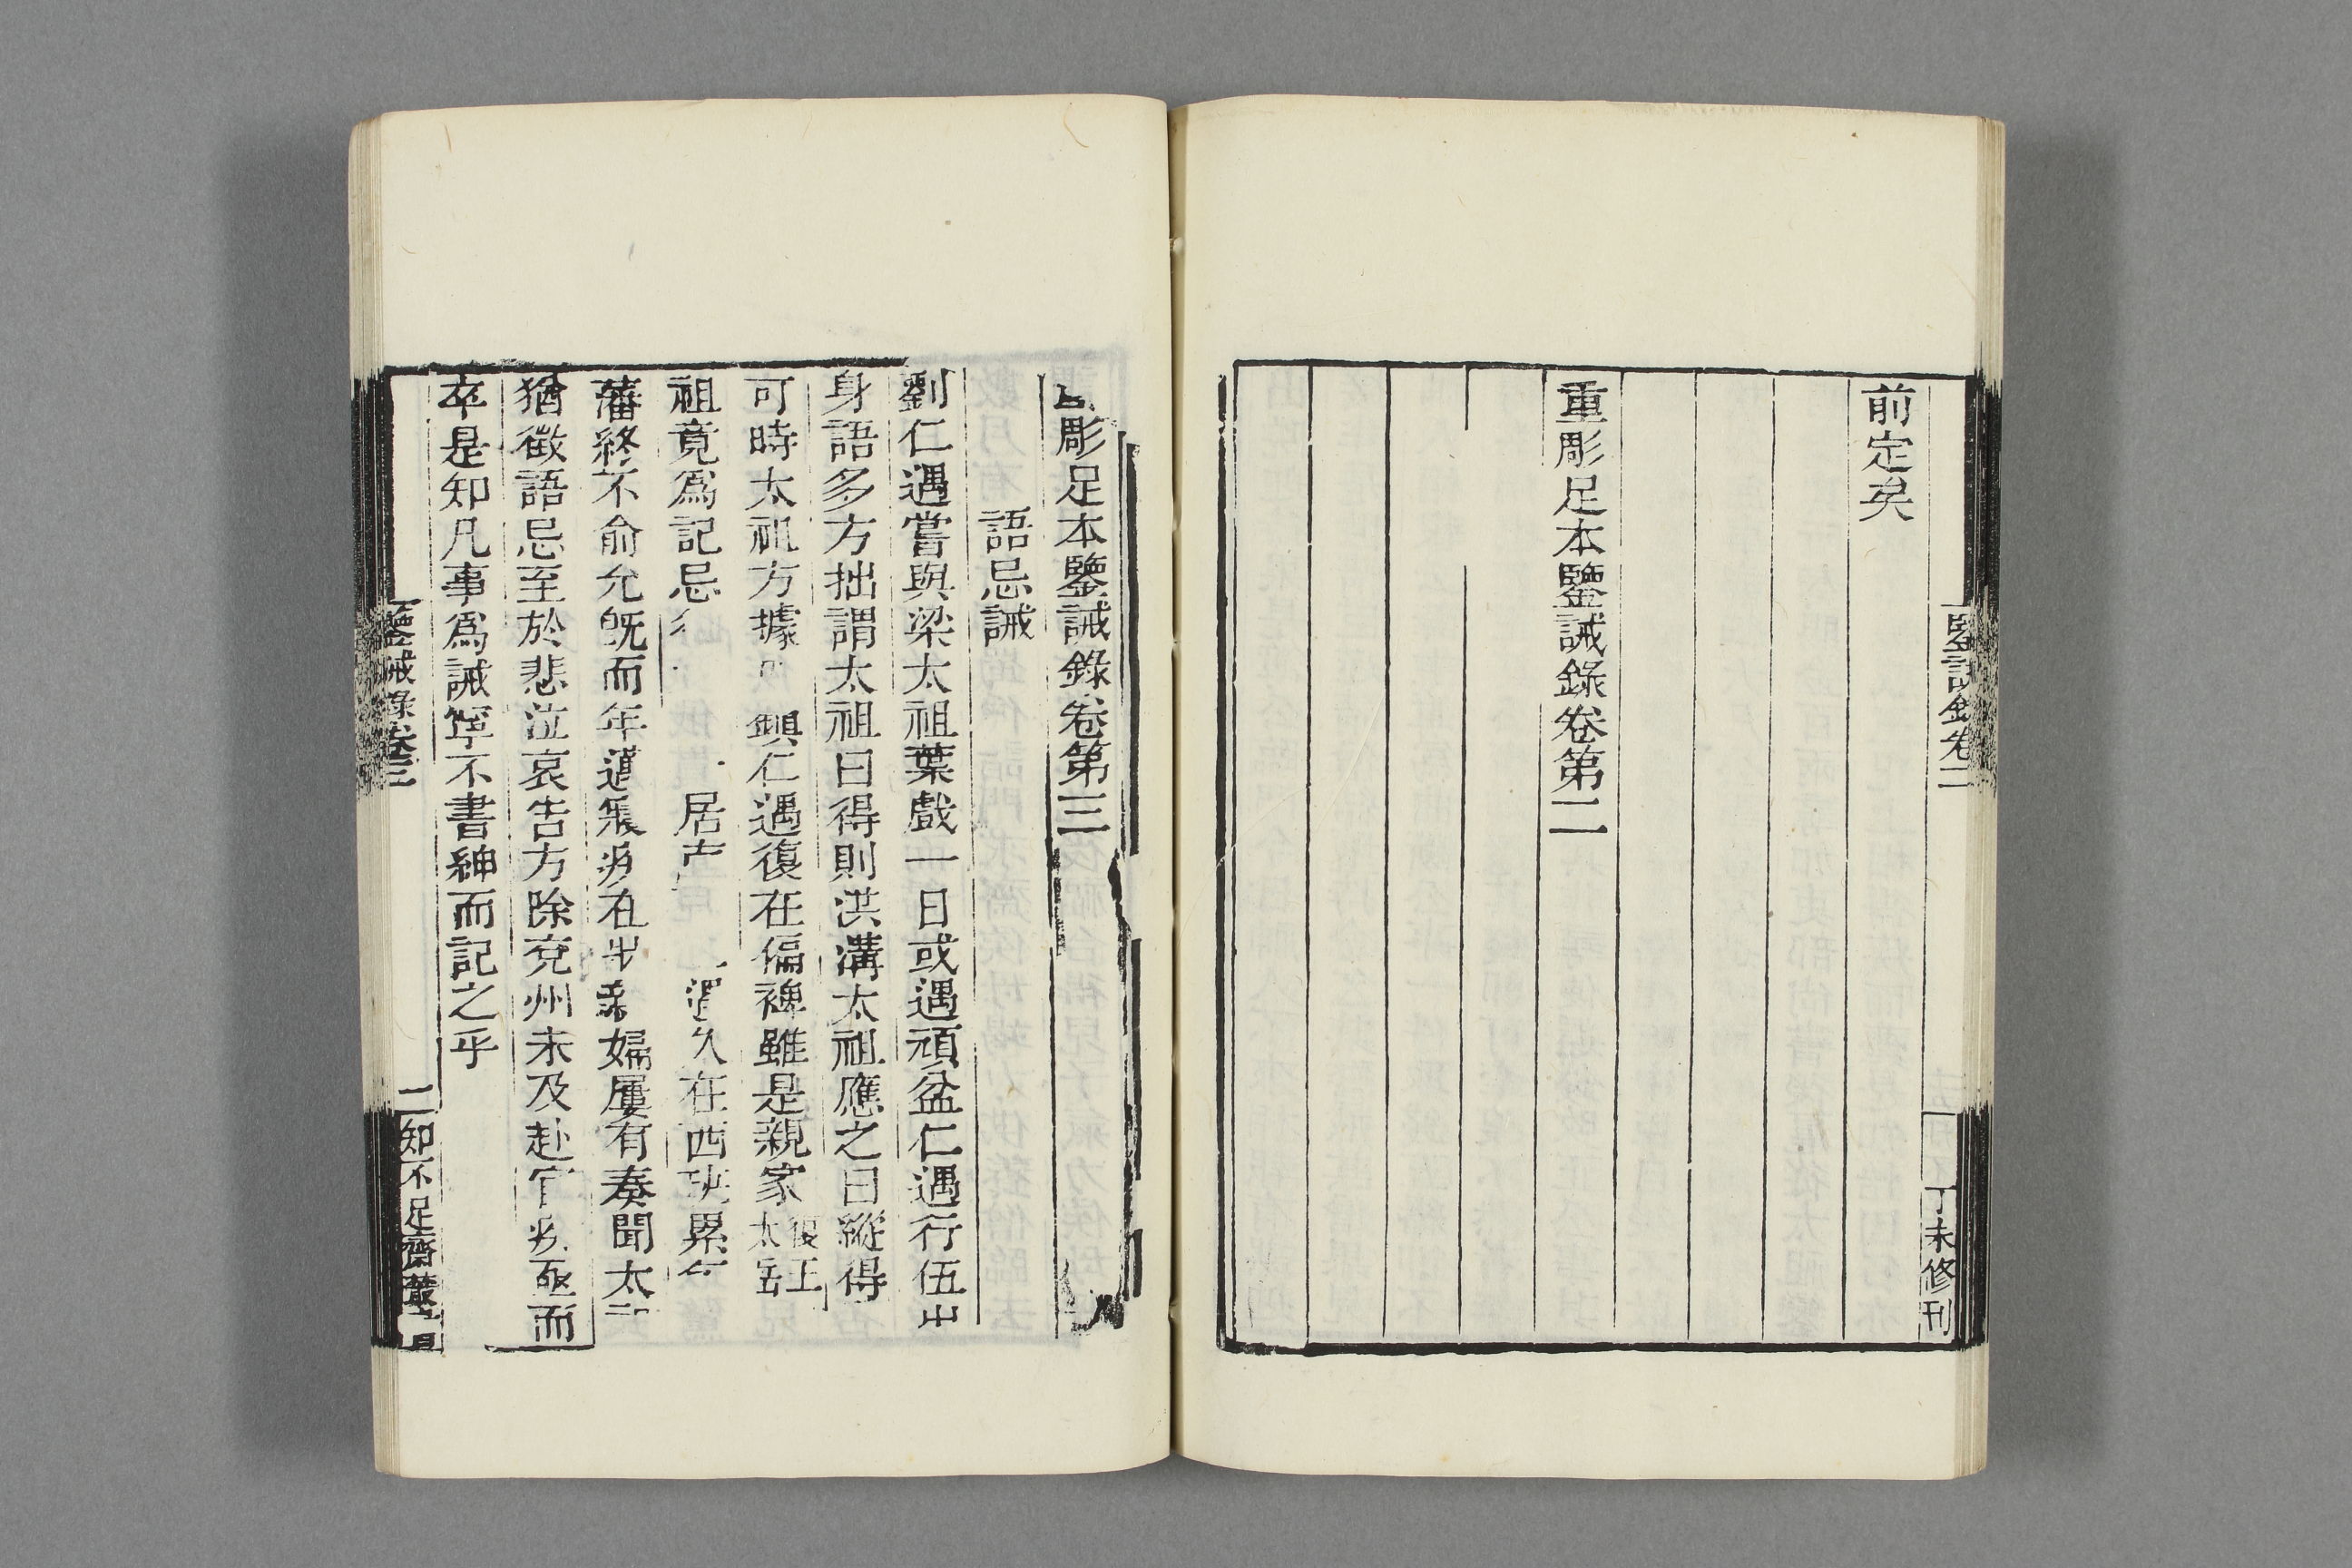 前定矣
重彫足本鑒誡錄卷第二
鑒誡錄卷二
丁未修刊
彫足本鑒誡錄卷第三
語忌誡
劉仁遇嘗與梁太祖葉戲一日或遇頑盆仁遇行伍出
身語多方拙謂太祖曰得則洪溝太祖應之曰縱得
可時太祖方據 鎮仁遇復在偏裨雖是親家
祖竟為記忌 居 遇久在西班累
藩終不俞允旣而年 疾在 婦屢有奏聞太
猶徵語忌至於悲泣哀告方除兗州未及赴官疾亟而
卒是知凡事爲誡寧不書紳而記之乎
鑒誡錄卷三
一 知不足齋叢書